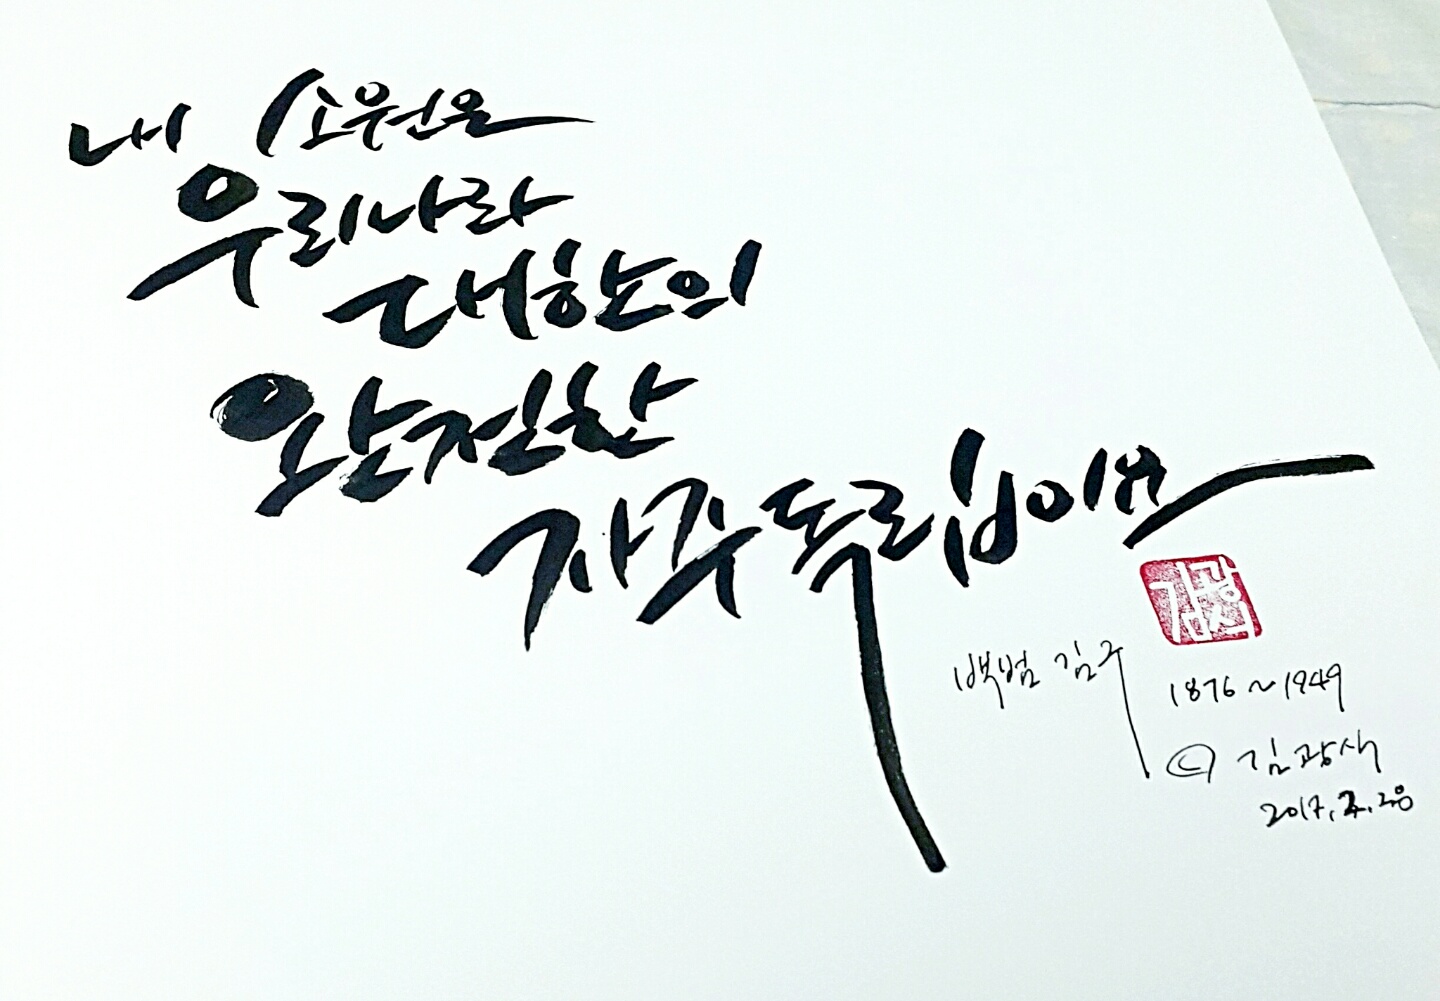 내 소원은
우리나라
대한의
완전한
자주독립이요
김광석
백범 김구
1876~1949
© 김광석
2017. 2. 28